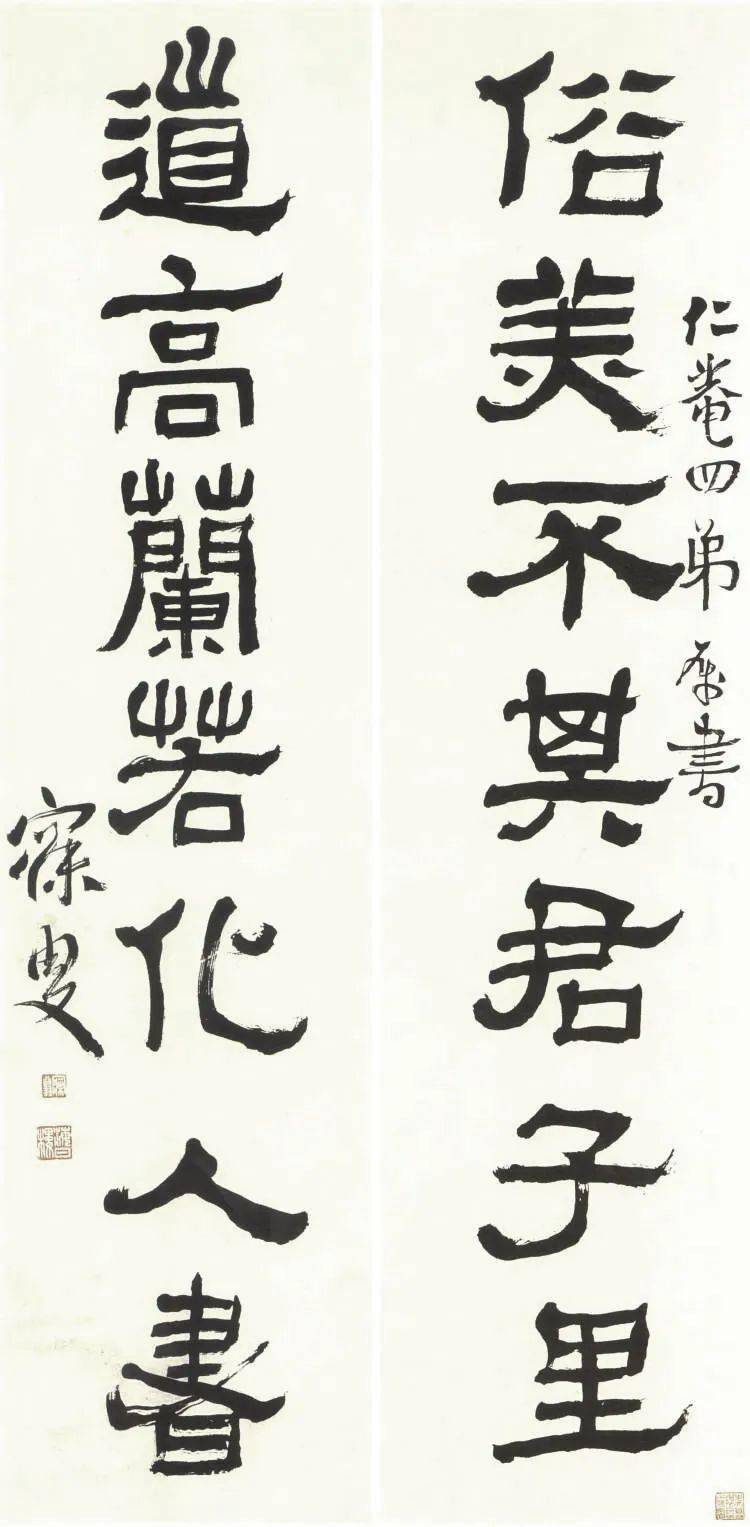 俗美不其君子里
仁菴四弟属書
道高蘭若化人書
寐叟